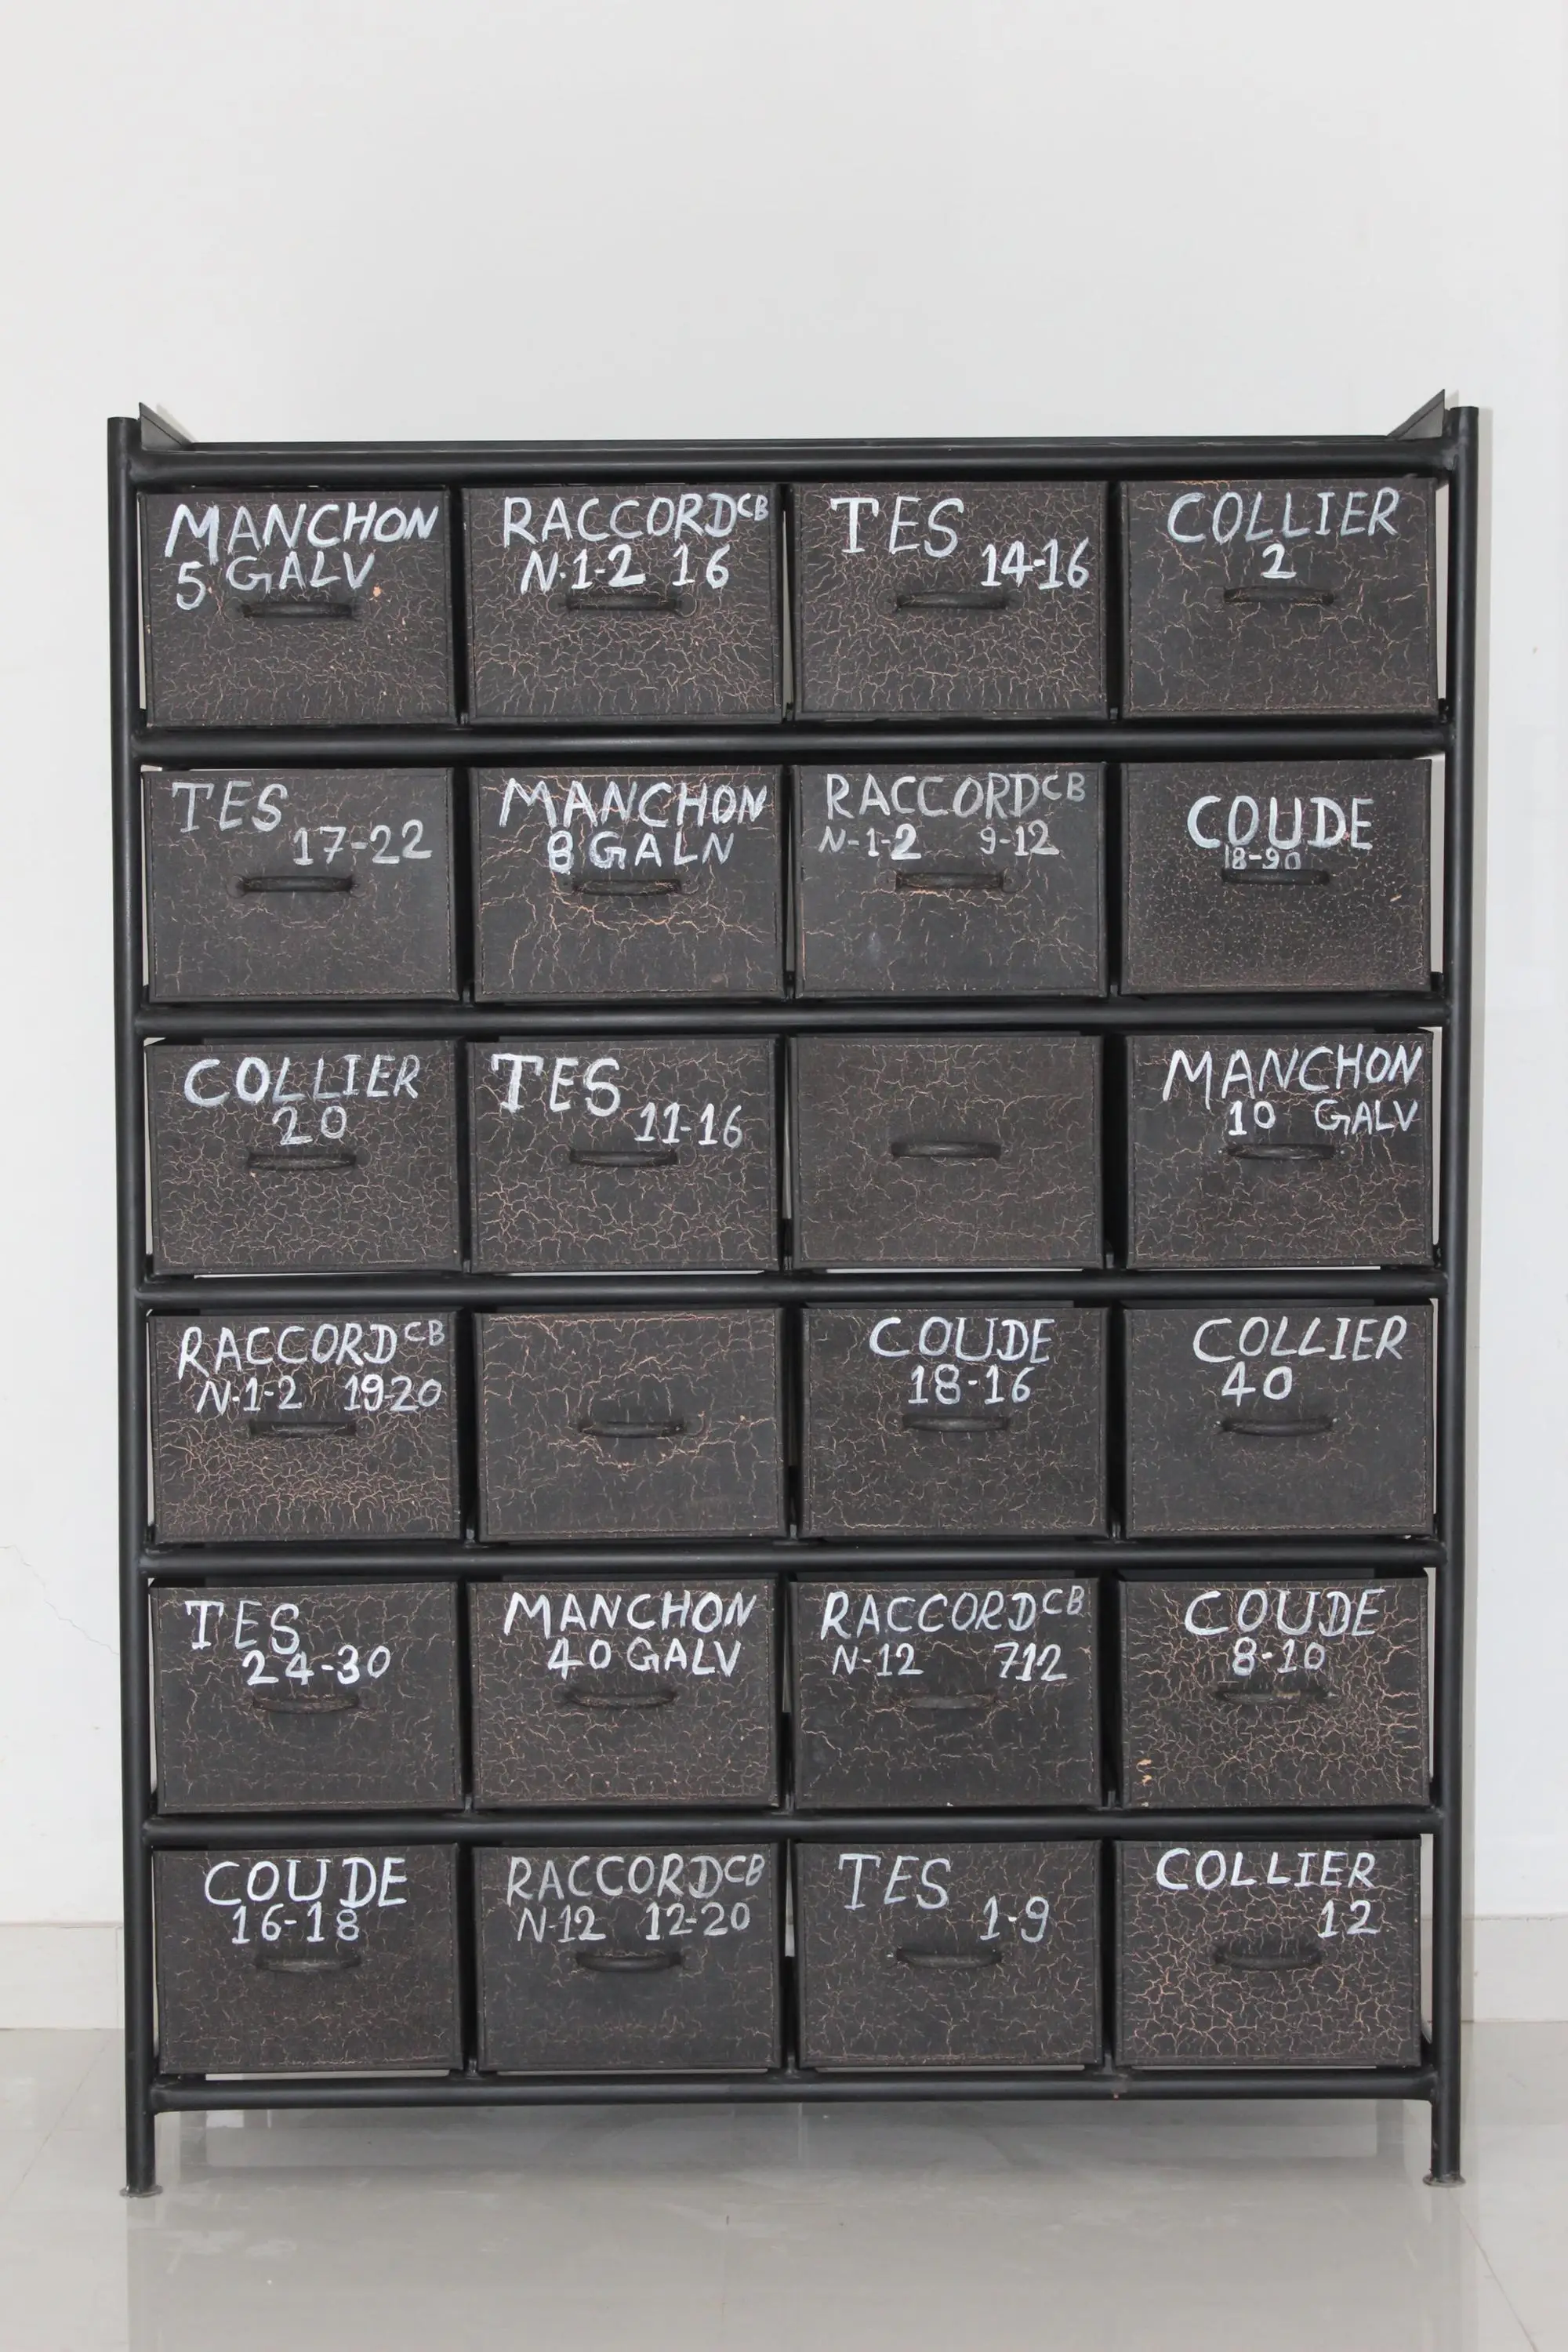 MANCHON
5 GALV
RACCORD CB
N·1-2 16
TES
14-16
COLLIER
2
TES
17-22
MANCHON
8 GALN
RACCORD CB
N-1-2 9-12
COUDE
18-90
COLLIER
20
TES
11-16
MANCHON
10 GALV
RACCORD CB
N-1-2 19-20
COUDE
18-16
COLLIER
40
TES
24-30
MANCHON
40 GALV
RACCORD CB
N-12 712
COUDE
8-10
COUDE
16-18
RACCORD CB
N-12 12-20
TES
1-9
COLLIER
12